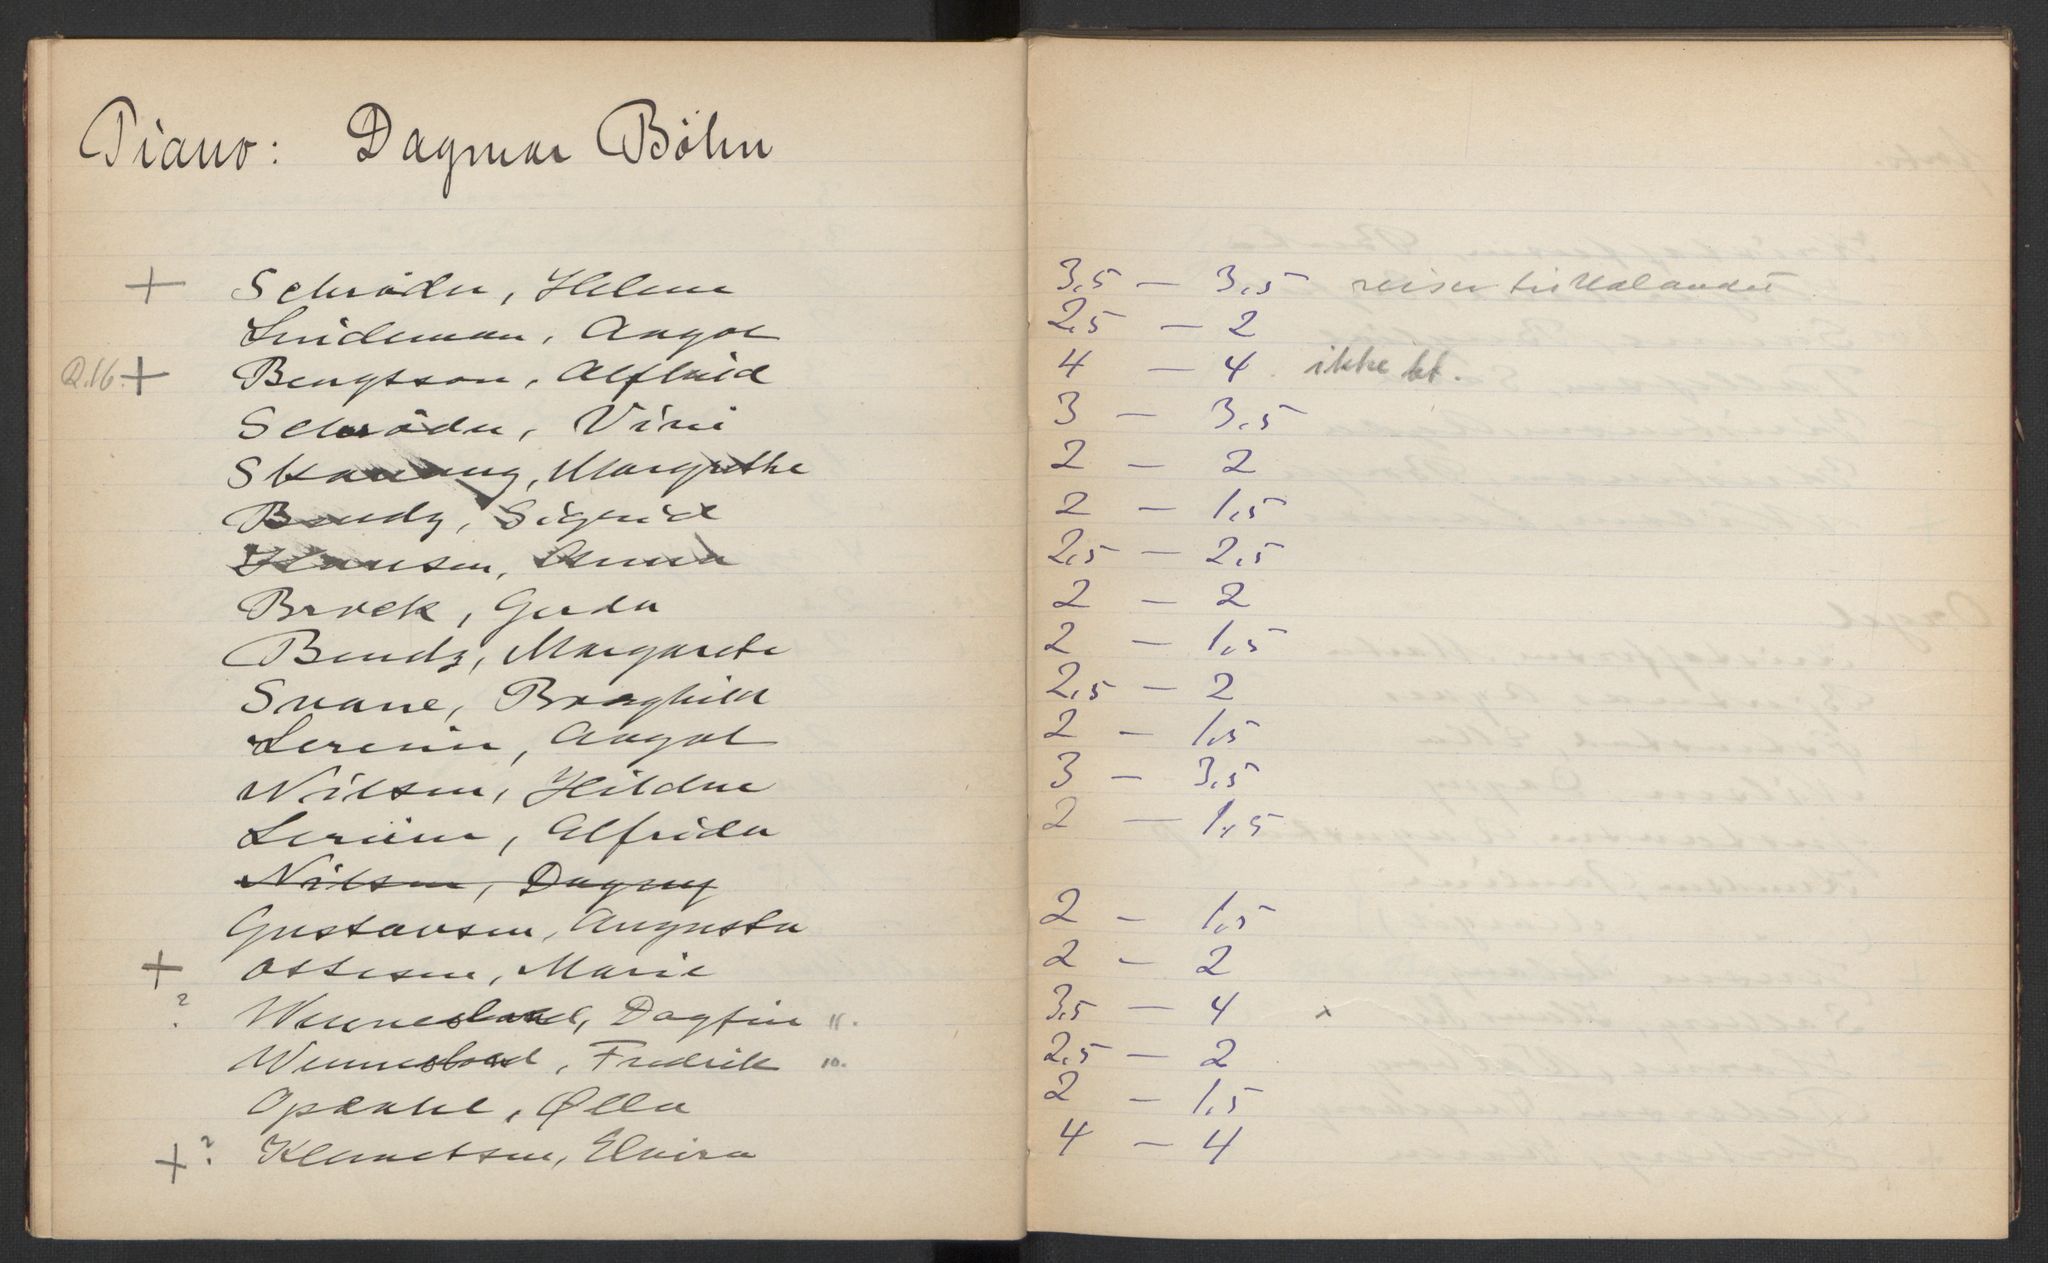 Piano: Dagmar Böhn
+ Schrøder, Helene 3,5 — 3,5 reiser til Utlandet
Lindeman, Aagot 2,5 — 2
Q.16. + Bengtsson, Alfhild 4 — 4 ikke bet.
Schrøder, Vivi 3 — 3,5
Skanung, Margrethe 2 — 2
Bendz, Sigrid 2 — 1,5
Hansen, Anna 2,5 — 2,5
Brock, Gerda 2 — 2
Bendz, Margarete 2 — 1,5
Svane, Borghild 2,5 — 2
Aagot 2 — 1,5
Nilsen, Hildur 3 — 3,5
Elfrida 2 — 1,5
Nilsen, Dagny
Gustavsen, Augusta 2 — 1,5
+ Ottesen, Marie 2 — 2
? Wennesland, Dagfin 11. 3,5 — 4 x
Wennesland, Fredrik 10. 2,5 — 2
Opdahl, Ølla 2 — 1,5
+ ? Klemetsen, Elvira 4 — 4